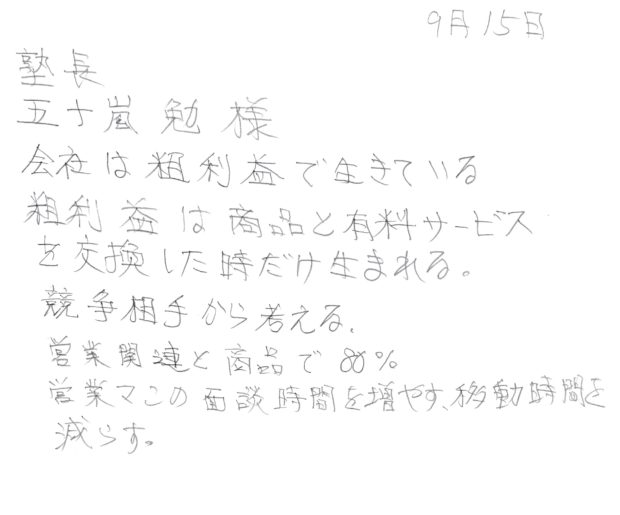 9月15日
塾長
五十嵐 勉 様
会社は粗利益で生きている
粗利益は商品と有料サービス
を交換した時だけ生まれる。
競争相手から考える。
営業関連と商品で80%
営業マンの面談時間を増やす、移動時間を
減らす。